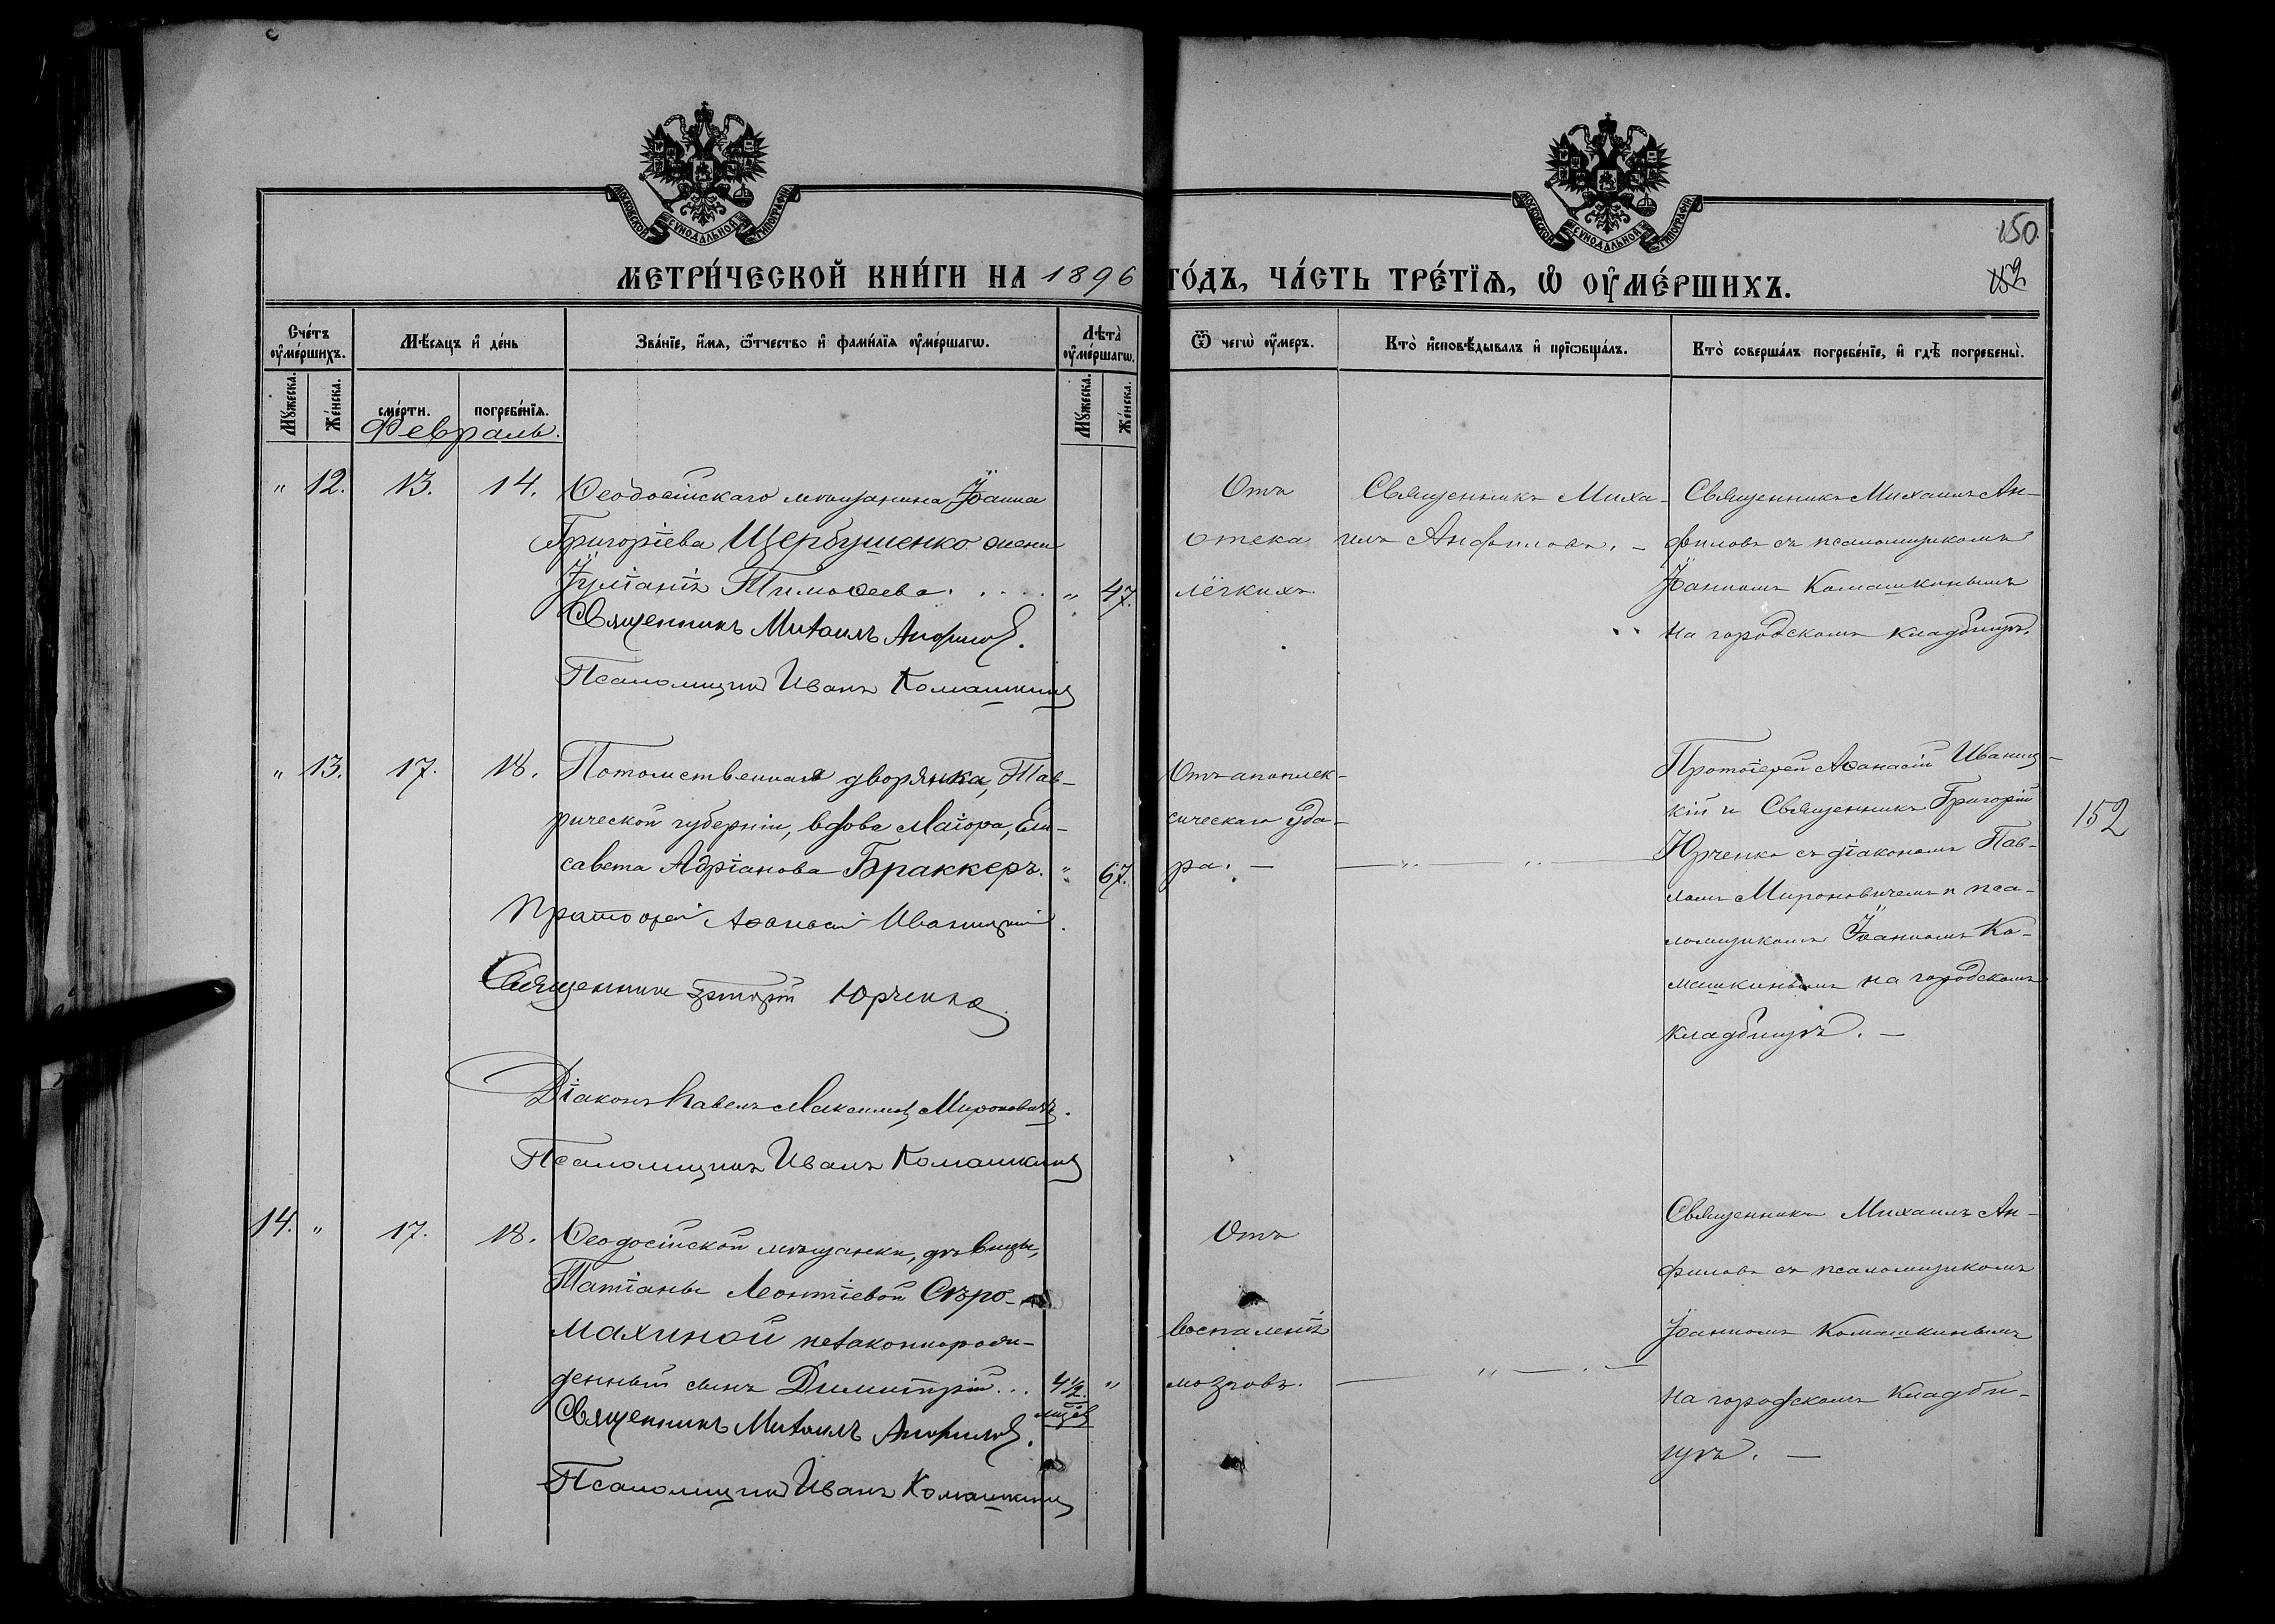 МОСКОВСКОЙ СѴНОДАЛЬНОЙ ТИПОГРАФІИ
МОСКОВСКОЙ СѴНОДАЛЬНОЙ ТИПОГРАФІИ
150.
МЕТРИ́ЧЕСКОЙ КНИ́ГИ НА 1896 ГО́ДЪ, ЧА́СТЬ ТРЕ́ТЇѦ, Ѽ ОУ҆МЕ́РШИХЪ.
152
Сче́тъ оу҆ме́ршихъ.
Мѣ́сяцъ и҆ де́нь
Зва́нїе, и҆́мя, ѻ҆́тчество и҆ фами́лїя оу҆ме́ршагѡ.
Лѣ́та оу҆ме́ршагѡ.
Ѿ чегѡ̀ оу҆́меръ.
Кто̀ и҆сповѣ́дывалъ и҆ прїѡбща́лъ.
Кто̀ соверша́лъ погребе́нїе, и҆ гдѣ̀ погребены̀.
Мꙋ́жеска.
Же́нска.
сме́рти.
погребе́нїя.
Мꙋ́жеска.
Же́нска.
Февраль.
" 12. 13. 14.
Ѳеодосійскаго мѣщанина Іоанна
Григоріева Щербушенко жена
Іуліанія Тимоѳеева. . . . . " 47.
Священникъ Михаилъ Анфиловъ.
Псаломщикъ Иванъ Комашкинъ
Отъ
отека
лёгкихъ.
Священникъ Миха-
илъ Анфиловъ. –
Священникъ Михаилъ Ан-
филовъ съ псаломщикомъ
Іоанномъ Комашкинымъ
на городскомъ кладбищѣ.
" 13. 17. 18.
Потомственная дворянка, Тав-
рической губерніи, вдова Маіора, Ели-
савета Адріанова Браккеръ. " 67.
Протоіерей Аѳанасій Иваницкій.
Священникъ Григорій Юрченко
Діаконъ Павелъ Максимов Мироновичъ.
Псаломщикъ Иванъ Комашкинъ
Отъ апоплек-
сическаго уда-
ра. –
Протоіерей Аѳанасій Иваниц-
кій и Священникъ Григорій
Юрченко съ діакономъ Пав-
ломъ Мироновичемъ и пса-
ломщикомъ Іоанномъ Ко-
машкинымъ на городскомъ
кладбищѣ. –
152
14. " 17. 18.
Ѳеодосійской мѣщанки, дѣвицы,
Татіаны Леонтіевой Сѣро-
махиной незаконнорож-
денный сынъ Димитрій... 4½ "
мѣсяц
Священникъ Михаилъ Анфиловъ.
Псаломщикъ Иванъ Комашкинъ
Отъ
воспаленія
мозговъ.
Священникъ Михаилъ Ан-
филовъ съ псаломщикомъ
Іоанномъ Комашкинымъ
на городскомъ кладби-
щѣ. –